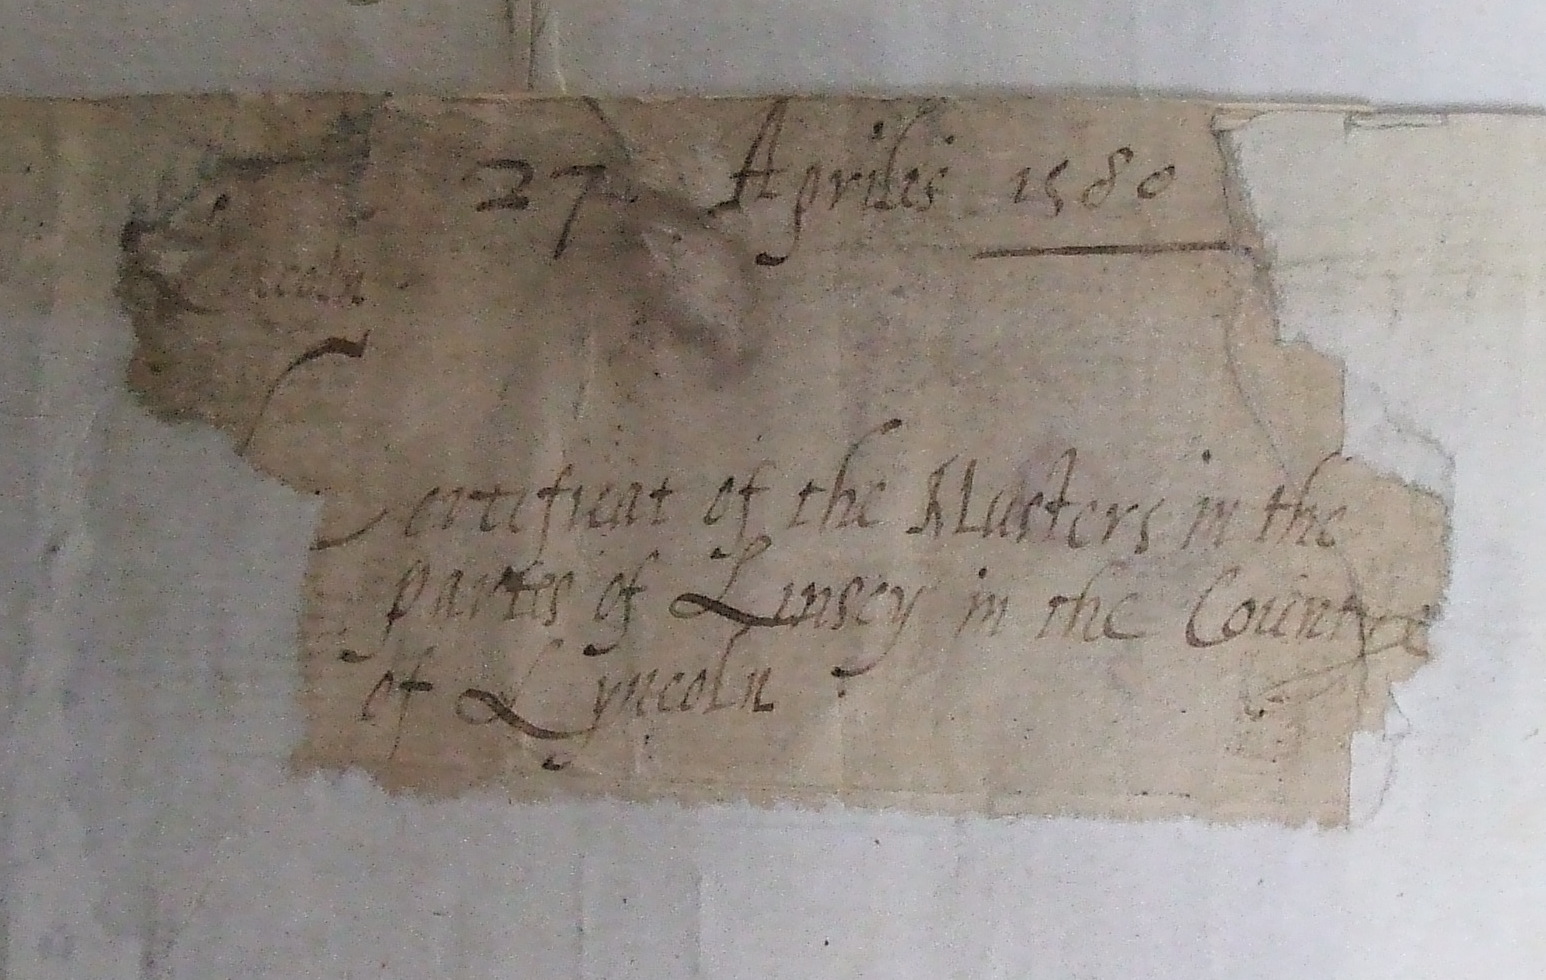 27 Aprilis 1580
Lincoln
Certificat of the Musters in the
partes of Linsey in the Countye
of Lyncoln